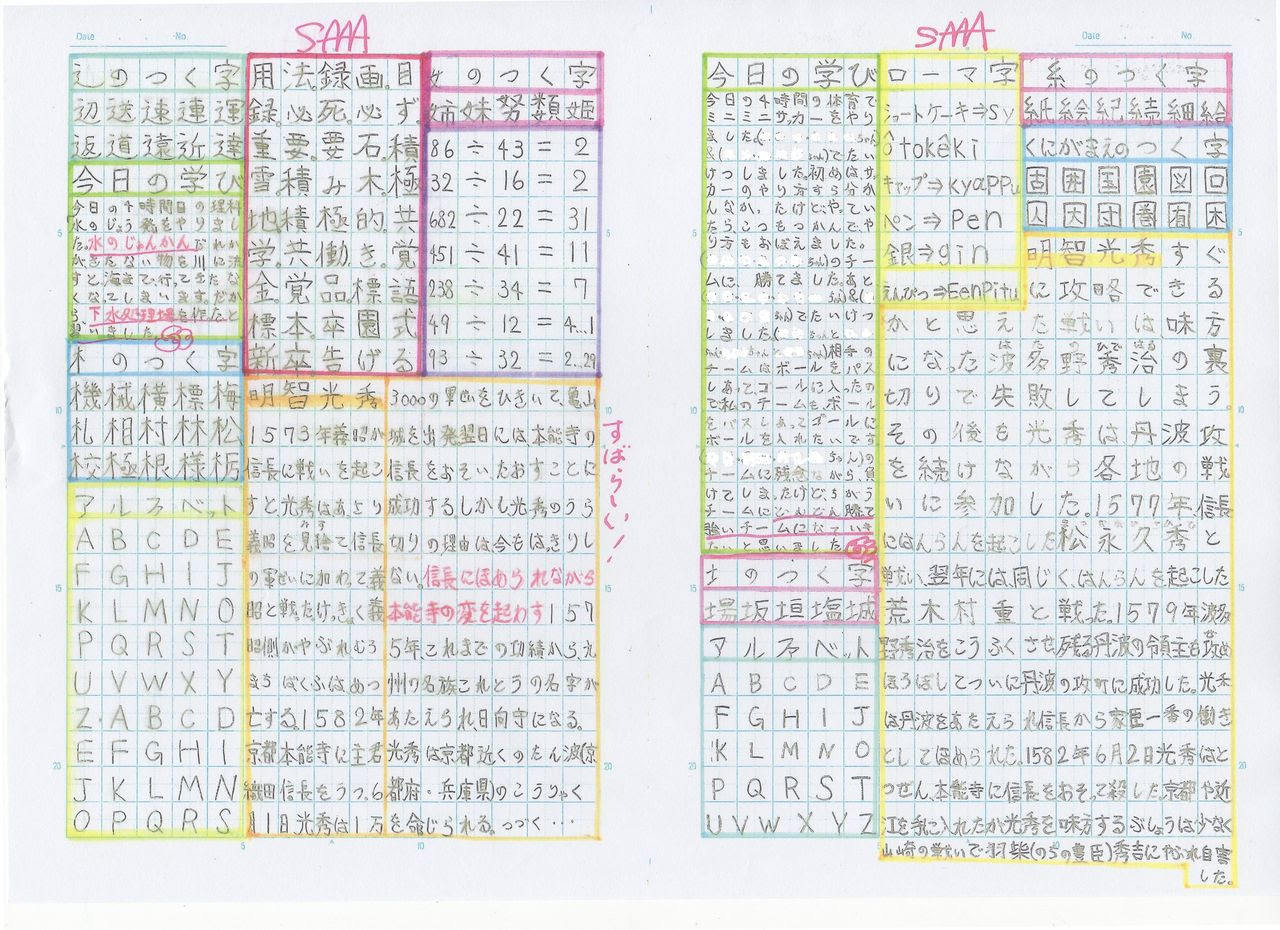 Date . . No.
SAAA
辶のつく字
辺送速連運
返道遠近達
今日の学び
今日の4時間目の理科
水のじょう発をやりまし
た。水のじゅんかん
すと、海まで行ってきたな
くなってしまいます。だか
ら、下水処理場を作ったと
習いました。
木のつく字
機械横標梅
札相村林松
校極根様栃
アルファベット
A B C D E
F G H I J
K L M N O
P Q R S T
U V W X Y
Z. A B C D
E F G H I
J K L M N
O P Q R S
用法録画。目
録。必死。必ず。
重要。要石。積
雪。積み木。極
地。積極的。共
学。共働き。覚
金。覚品。標語
標本。卒園式
新卒。告げる
女のつく字
姉妹努類姫
86÷43=2
32÷16=2
682÷22=31
451÷41=11
238÷34=7
49÷12=4…1
93÷32=2…29
明智光秀
1573年義昭が
信長に戦いを起こ
すと光秀はあより
義昭を見捨て信長
の軍せいに加わって義
昭と戦った。けっきょく義
昭側がやぶれむろ
まちばくふはめつ
亡する。1582年
京都本能寺に主君
織田信長をうつ。6
月1日光秀は1万
3000の軍せいをひきいて、亀山
城を出発翌日には本能寺の
信長をおそい、たおすことに
成功する。しかし光秀のうら
切りの理由は今もはっきりし
ない。信長にほめられながら
本能寺の変を起わす157
5年、これまでの功績から、九
州の名族これとうの名字が
あたえられ、日向守になる。
光秀は京都近くのたん波(京
都府・兵庫県)のこうりゃく
を命じられる。つづく…
すばらしい!
Date . . No.
SAAA
今日の学び
今日の4時間の体育で
ミニミニサッカーをやり
ました。
けつしました。初めは、サッ
カーのやり方すら分か
んなかったけど、やってい
たら、こつもつかんで、や
り方もおぼえました。
ちゃん)のチー
ムに、勝てました。あと
でたいけつ
しました。
相手の
チームはボールをパス
しあって、ゴールに入ったの
で私のチームも、ボール
をパスしあってゴールに
ボールを入れたいです
チームに残念ながら、負
けてしまったけど、ちがう
チームにどんどん勝って
強いチームになっていき
たいと思いました。
土のつく字
場坂垣塩城
アルファベット
A B C D E
F G H I J
K L M N O
P Q R S T
U V W X Y Z
ローマ字
ショートケーキ⇒sy
ôtokêki
キャップ⇒kyaPPu
ペン⇒Pen
銀⇒gin
えんぴつ⇒EenPitu
糸のつく字
紙絵紀続細給
くにがまえのつく字
固囲国園図回
囚因団圏困
明智光秀すぐ
に攻略できる
かと思えた戦いは、味方
になった波多野秀治の裏
はたのひではる
切りで失敗してしまう。
その後も光秀は、丹波攻
を続けながら各地の戦
いに参加した。1577年、信長
にはんらんを起こした松永久秀と
戦い、翌年には、同じく、はんらんを起こした
荒木村重と戦った。1579年波多
野秀治をこうふくさせ、残る丹波の領主も攻め
ほろぼしてついに丹波の攻町に成功した。光秀
は丹波をあたえられ信長から家臣一番の働き
としてほめられた。1582年6月2日光秀はと
つぜん、本能寺に信長をおそって殺した。京都や近
江を手に入れたが光秀を味方するぶしょうは少なく
山崎の戦いで羽柴(のちの豊臣)秀吉にやぶれ自害
した。